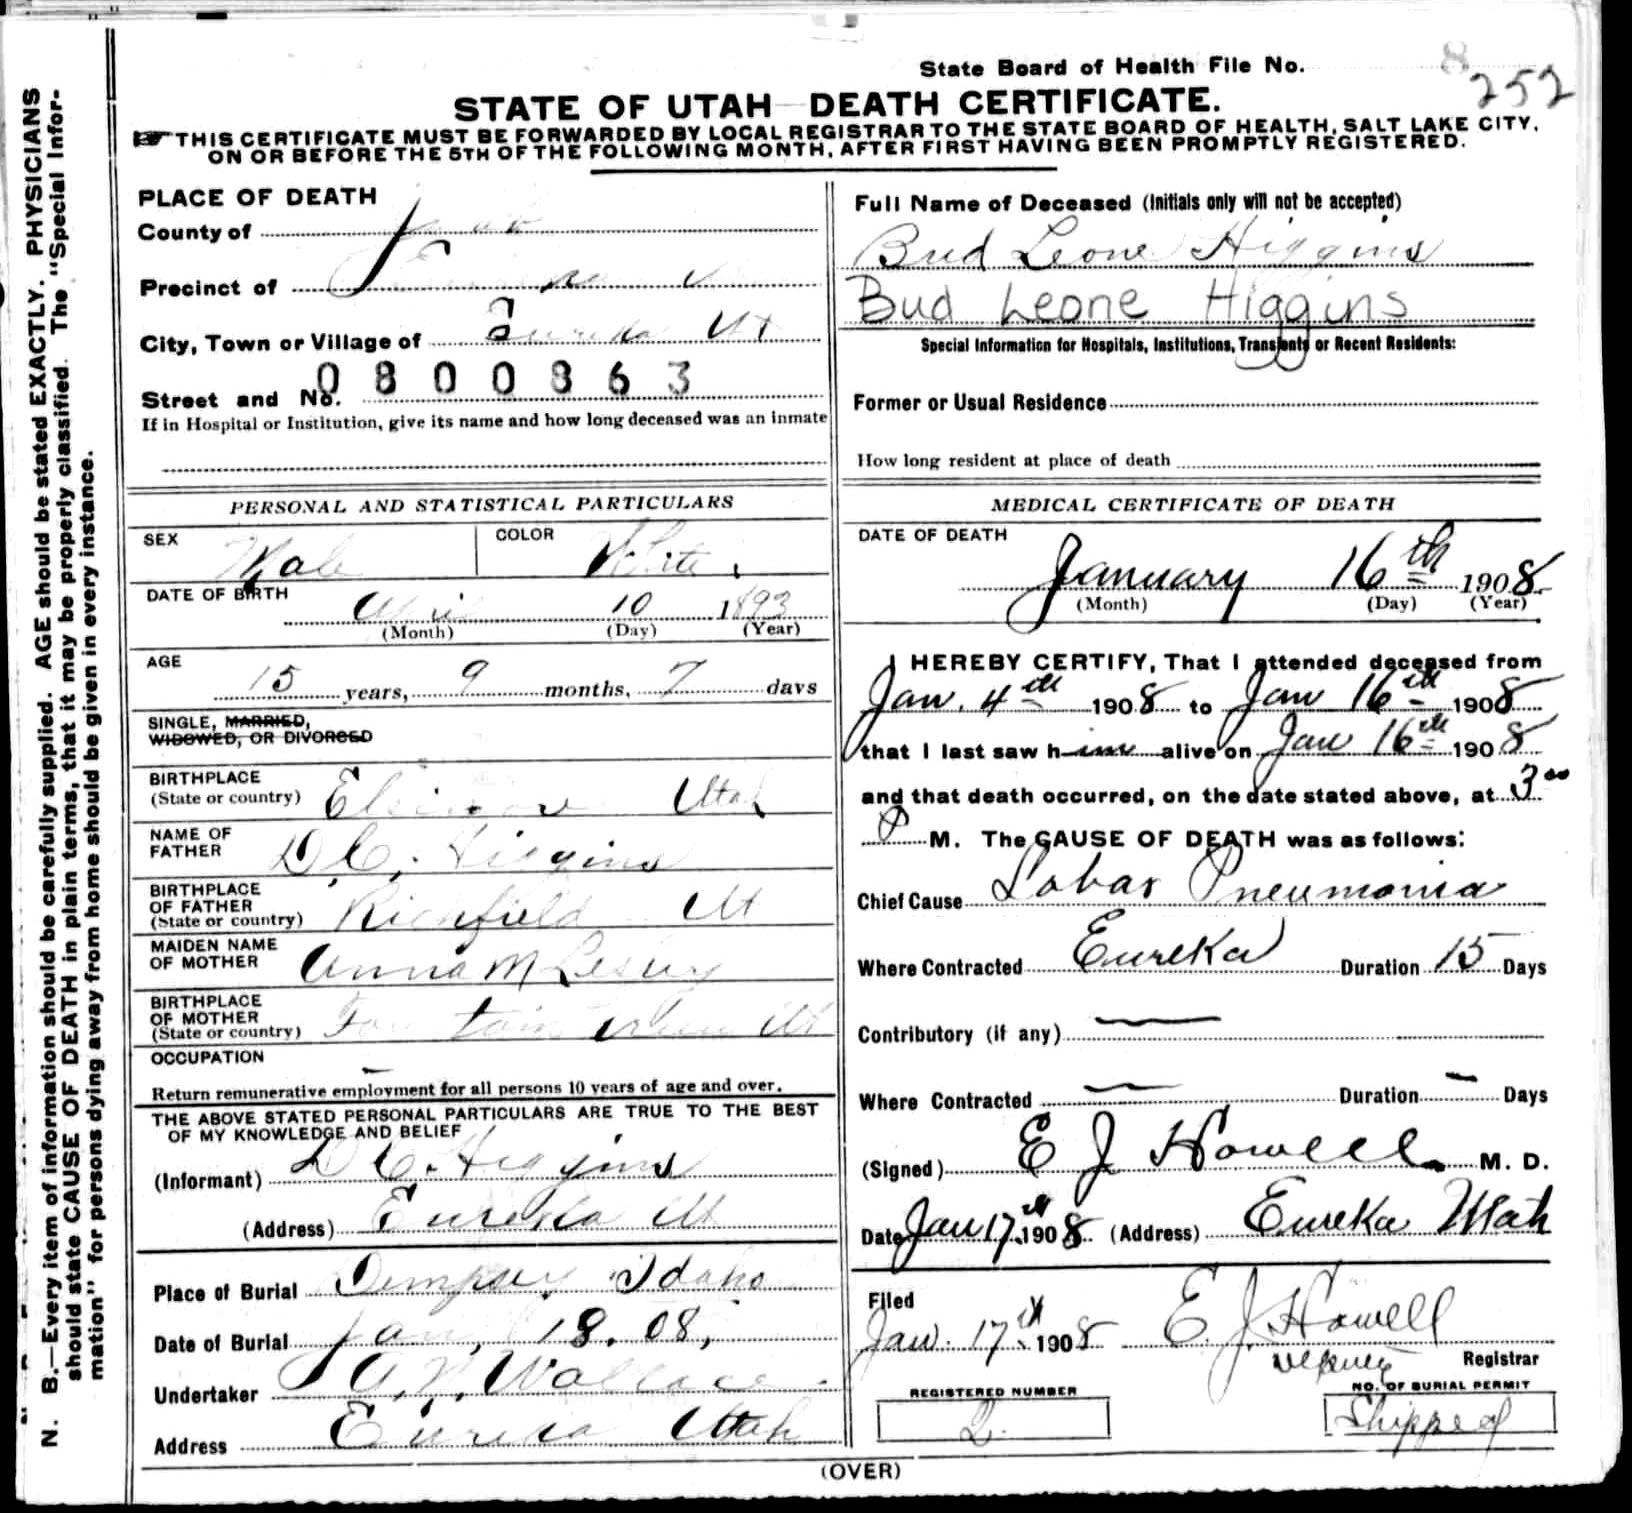 State Board of Health File No. 8 252
STATE OF UTAH DEATH CERTIFICATE.
THIS CERTIFICATE MUST BE FORWARDED BY LOCAL REGISTRAR TO THE STATE BOARD OF HEALTH, SALT LAKE CITY,
ON OR BEFORE THE 5TH OF THE FOLLOWING MONTH, AFTER FIRST HAVING BEEN PROMPTLY REGISTERED.
N. B.—Every item of information should be carefully supplied. AGE should be stated EXACTLY. PHYSICIANS
should state CAUSE OF DEATH in plain terms, that it may be properly classified. The "Special Infor-
mation" for persons dying away from home should be given in every instance.
PLACE OF DEATH
County of Juab
Precinct of
City, Town or Village of Eureka Ut
Street and No. 0800863
If in Hospital or Institution, give its name and how long deceased was an inmate
Full Name of Deceased (Initials only will not be accepted)
Bud Leone Higgins
Bud Leone Higgins
Special Information for Hospitals, Institutions, Transients or Recent Residents:
Former or Usual Residence
How long resident at place of death
PERSONAL AND STATISTICAL PARTICULARS
SEX Male
COLOR White
DATE OF BIRTH
April 10 1893
(Month) (Day) (Year)
AGE
15 years, 9 months, 7 days
SINGLE, MARRIED,
WIDOWED, OR DIVORCED
BIRTHPLACE
(State or country) Elsinore Utah
NAME OF
FATHER D. C. Higgins
BIRTHPLACE
OF FATHER
(State or country) Richfield Ut
MAIDEN NAME
OF MOTHER Anna M
BIRTHPLACE
OF MOTHER
(State or country) Fountain Green Ut
OCCUPATION –
Return remunerative employment for all persons 10 years of age and over.
THE ABOVE STATED PERSONAL PARTICULARS ARE TRUE TO THE BEST
OF MY KNOWLEDGE AND BELIEF
(Informant) D C. Higgins
(Address) Eureka Ut
Place of Burial Dempsey Idaho
Date of Burial Jan, 18. 08,
Undertaker Wallace
Address Eureka Utah
MEDICAL CERTIFICATE OF DEATH
DATE OF DEATH
January 16th 1908
(Month) (Day) (Year)
I HEREBY CERTIFY, That I attended deceased from
Jan. 4th 1908 to Jan 16th 1908
that I last saw him alive on Jan 16th 1908
and that death occurred, on the date stated above, at 3 00
P M. The CAUSE OF DEATH was as follows:
Chief Cause Lobar Pneumonia
Where Contracted Eureka Duration 15 Days
Contributory (if any) —
Where Contracted — Duration – Days
(Signed) E J Howell M. D.
Date Jan 17th 1908 (Address) Eureka Utah
Filed
Jan. 17th 1908 E. J. Howell
Deputy Registrar
REGISTERED NUMBER
2
NO. OF BURIAL PERMIT
Shipped
(OVER)